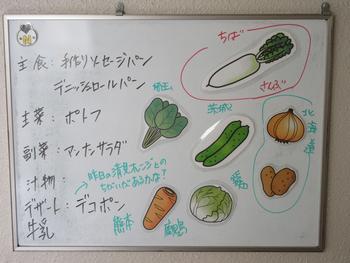 主食：手作りソーセージパン
デニッシュロールパン
主菜：ポトフ
副菜：アンナンサラダ
汁物：
→昨日の清見オレンジとの
ちがいがあるかな？
デザート：デコポン
牛乳
ちば
さんぶ
埼玉
茨城
北海道
愛知
熊本
鹿島